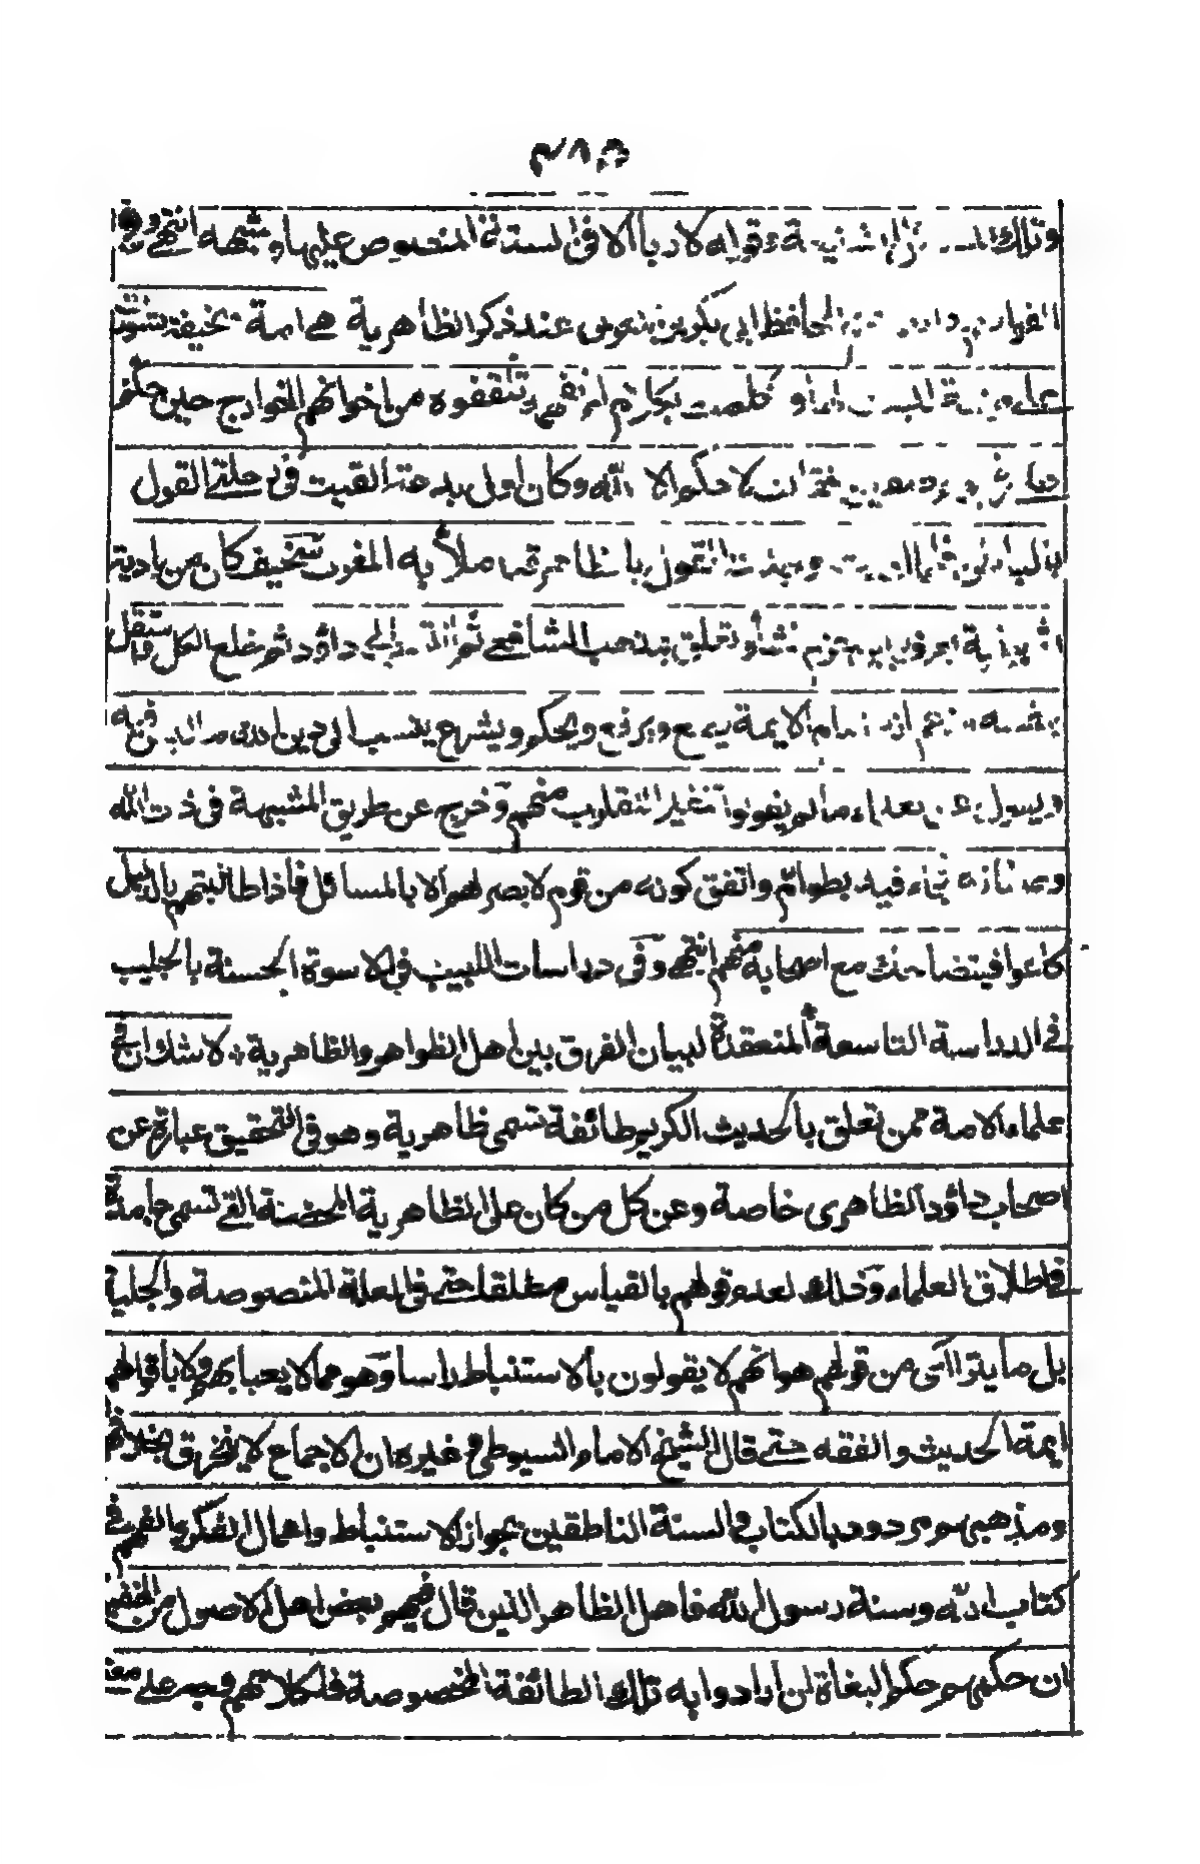 ٣٨٥
وتلك قوله لا ربا الا في الستة المنصوص عليها وشبهه انتهى وفي
الحافظ ابي بكر بن عند ذكر الظاهرية هي امة سخيفة تسورت
على تكلمت بكلام لم نفهمه تلقفوه من اخوانهم الخوارج حين حكم
يوم صفين فقالت لا حكم الا لله وكان اول بدعة القيت في رحلتي القول
بالباطن القول بالظاهر قد ملأ به المغرب سخيف كان من بادية
يعرف بابن حزم نشأ وتعلق بمذهب الشافعي ثم انتسب الى داؤد ثم خلع الكل واستقل
بنفسه وزعم انه امام الايمة يضع ويرفع ويحكم ويشرع ينسب الى دين الله ما ليس فيه
ويقول عن العلماء ما لم يقولوا تنفيرا للقلوب منهم وخرج عن طريق المشبهة في ذات الله
وصفاته فجاء فيه بطوام واتفق كونه من قوم لا بصر لهم الا بالمسائل فاذا طالبتهم بالدليل
كاعوا فيتضاحك مع اصحابه منهم انتهى وفي دراسات اللبيب في الاسوة الحسنة بالحبيب
في الدراسة التاسعة المنعقدة لبيان الفرق بين اهل الظواهر والظاهرية، لا شك ان في
علماء الامة ممن تعلق بالحديث الكريم طائفة تسمى ظاهرية وهو في التحقيق عبارة عن
اصحاب داؤد الظاهرى خاصة وعن كل من كان على الظاهرية المحضة التي تسمى جامدة
في اطلاق العلماء وذلك لعدم قولهم بالقياس مطلقا حتى في العلة المنصوصة والجلية
بل ما يترا اى من قولهم هو انهم لا يقولون بالاستنباط راسا وهو مما لا يعبا بهم ولا باقوالهم
ايمة الحديث والفقه حتى قال الشيخ الامام السيوطي وغيره ان الاجماع لا ينخرق بخلافهم
ومذهبهم مردود بالكتاب والسنة الناطقين بجواز الاستنباط واعمال الفكر والفهم في
كتاب الله وسنة رسول الله فاهل الظاهر الذين قال فيهم بعض اهل الاصول من الحنفية
ان حكمهم حكم البغاة ان ارادوا به تلك الطائفة المخصوصة فلكلامهم وجه على